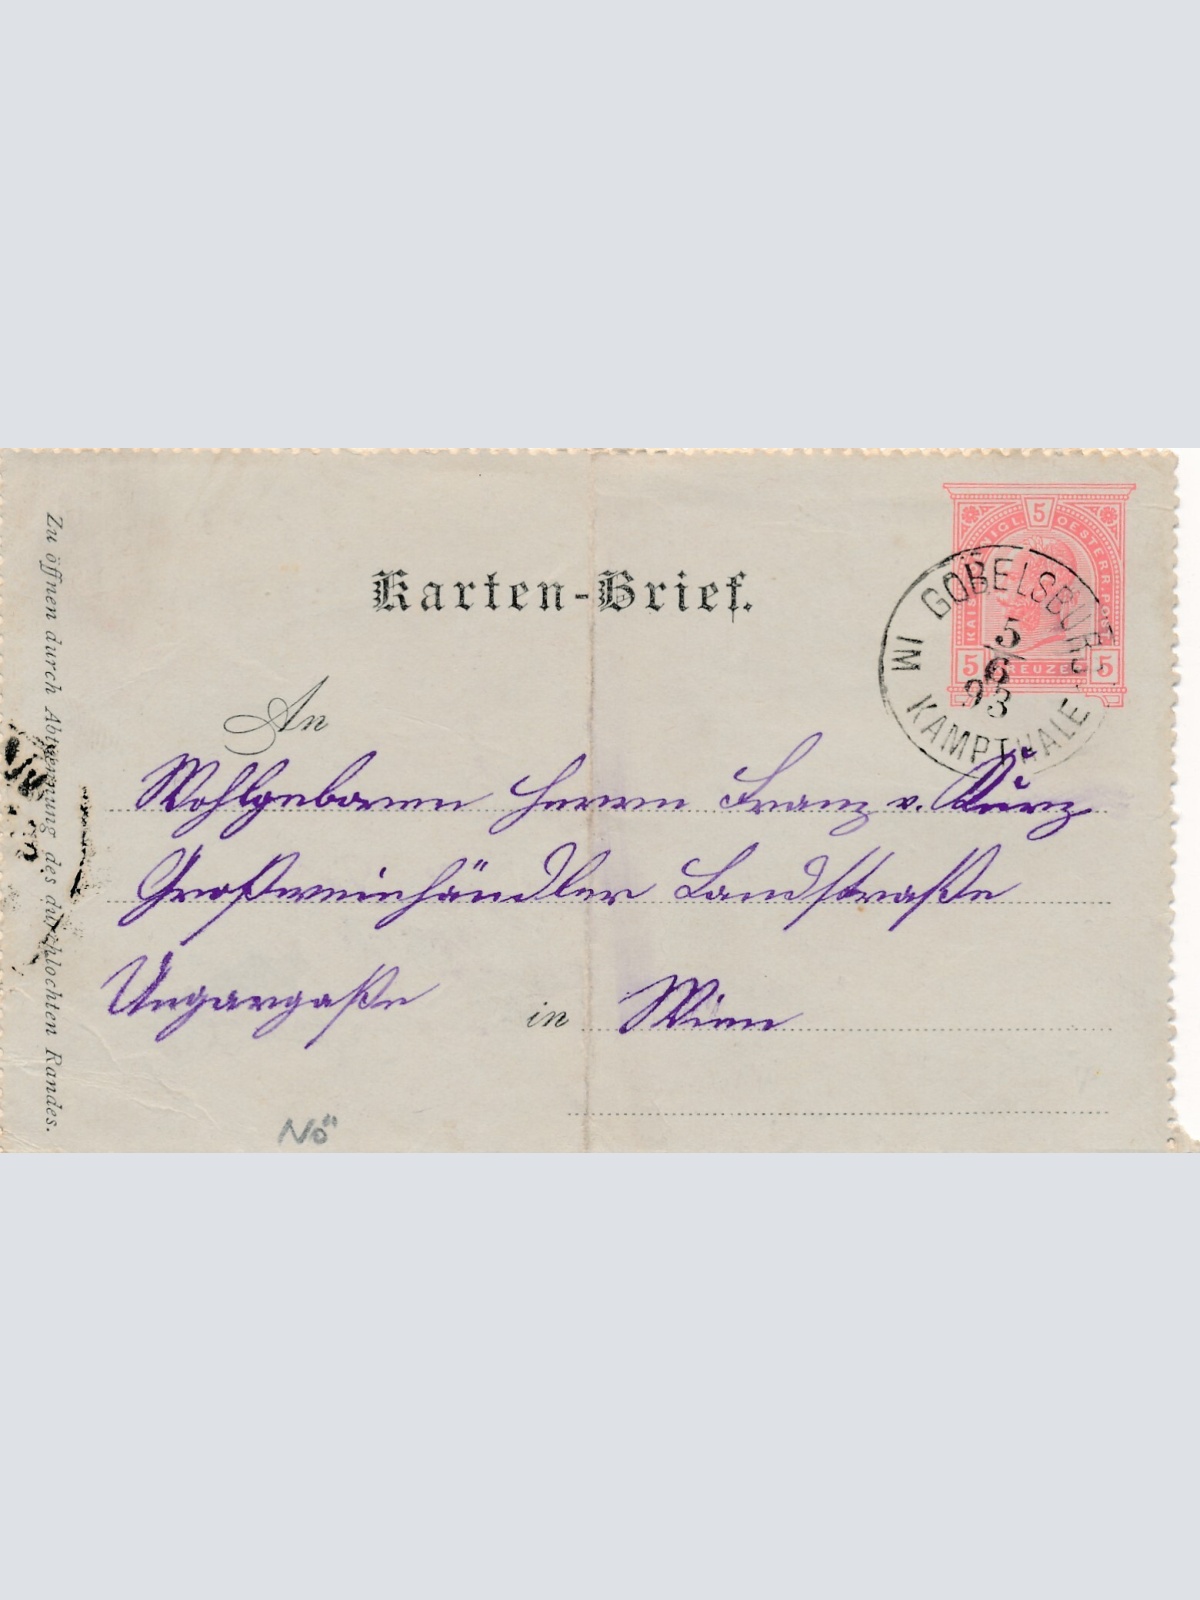 Karten-Brief.
5
KAIS. KÖNIGL. OESTERR. POST
5 KREUZER 5
GOBELSBURG
IM KAMPTHALE
5
6
93
An
Wohlgeborenen Herrn Franz v. Kurz
Großweinhändler Landstraße
Ungargasse
in Wien
NÖ
Zu öffnen durch Abtrennung des durchlochten Randes.